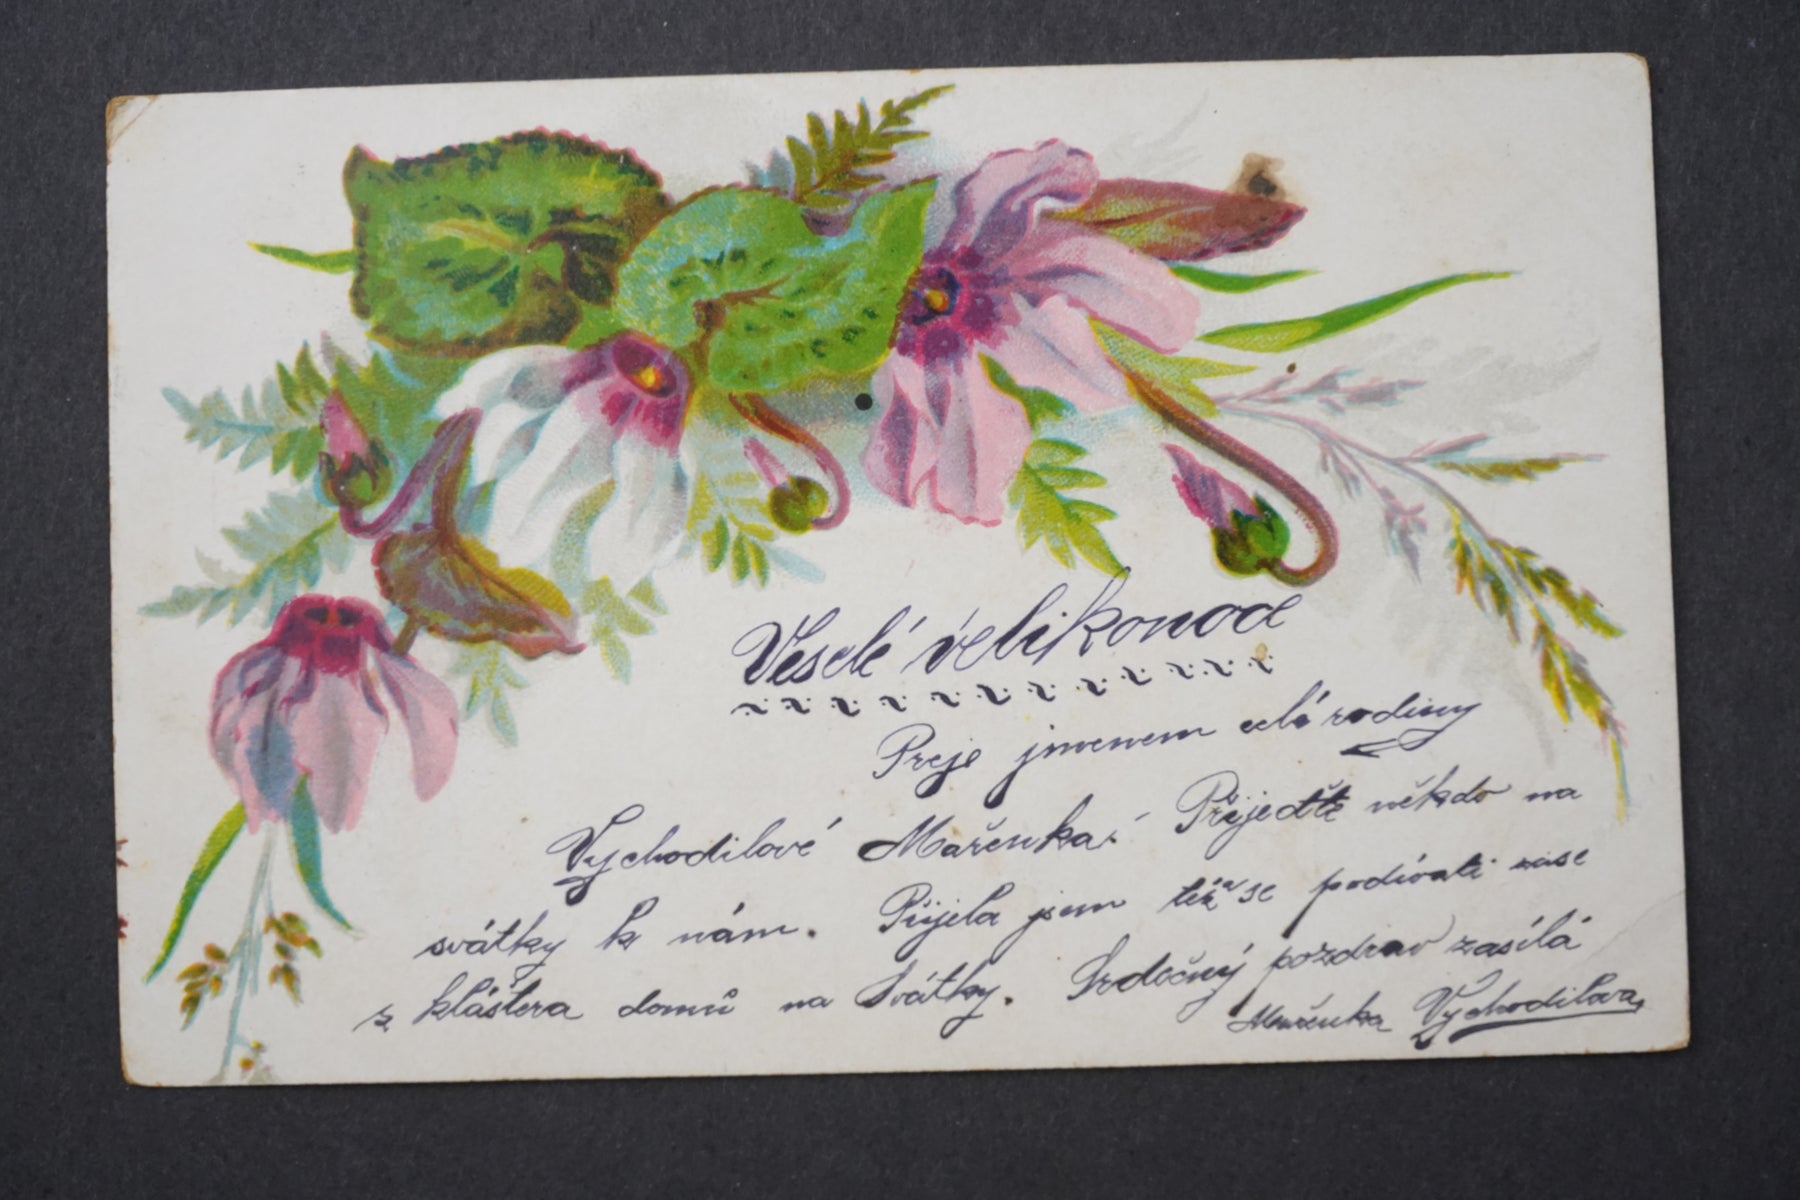 Veselé velikonoce
Preje jmenem celé rodiny
Vychodilové Mařenka. Přijeďte někdo na
svátky k nám. Přijela jsem též se podívati zase
z kláštera domů na Svátky. Srdečný pozdrav zasílá
Mařenka Vychodilova